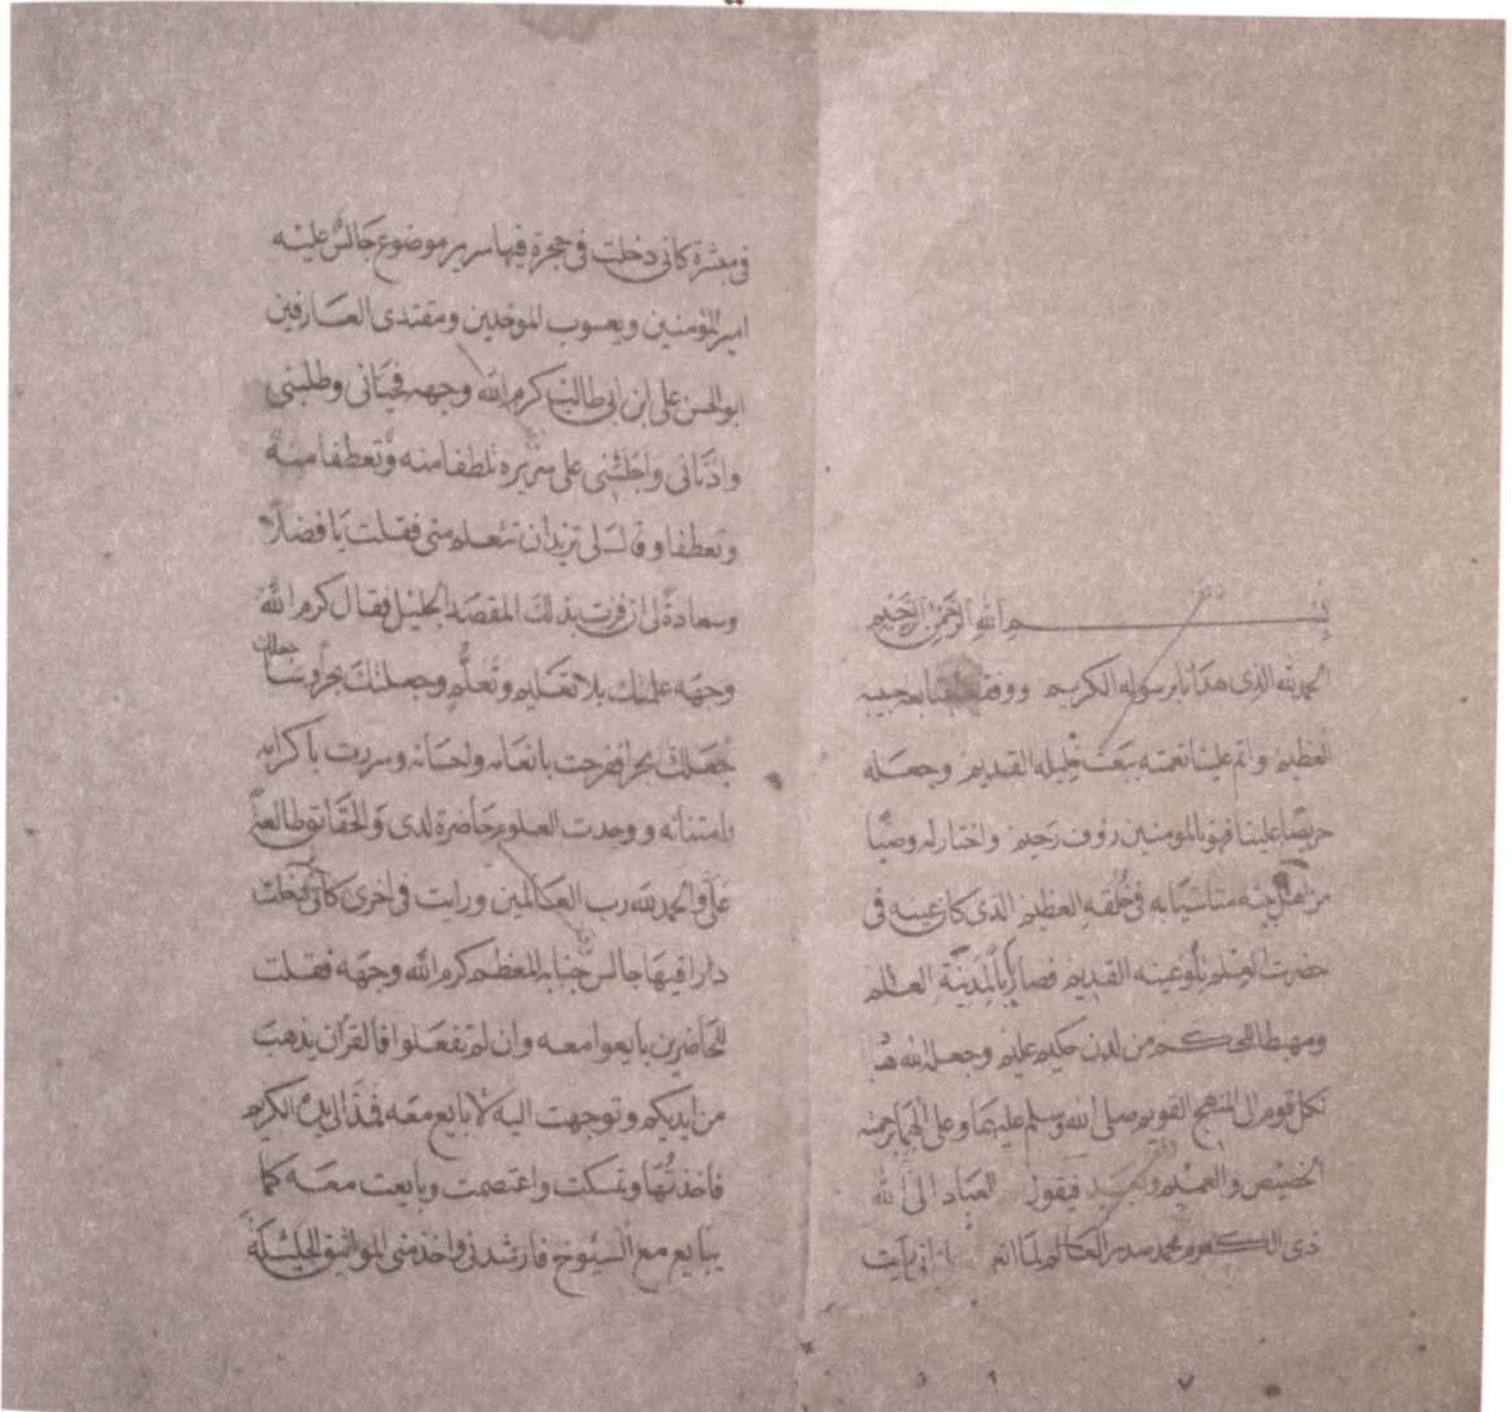 بسم الله الرحمن الرحيم
الحمد لله الذى هدانا برسوله الكريم ووفقنا بمتابعه حبيبه
العظيم واتم علينا نعمته ببعث خليله القديم وجعله
حريصا علينا فهو بالمومنين رؤف رحيم واختار له وصيا
من اهل بيته متاسيا به فى خلقه العظيم الذى كان عينه فى
حضرت العلم بلوعينه القديم فصار بابا لمدينة العلم
ومهبطا للحكم من لدن حكيم عليم وجعله الله هاد
لكل قوم الى المنهج القويم صلى الله وسلم عليهما وعلى الهما برحمته
والعميم وبعد فيقول العباد الى الله
ذى الكرم محمد العالم لما انى رايت
فى مبشرة كانى دخلت فى حجرة فيها سرير موضوع جالس عليه
امير المؤمنين ويعسوب الموحدين ومقتدى العارفين
ابو الحسن على ابن ابى طالب كرم الله وجهه فحيانى وطلبنى
وادنانى واجلسنى على سريره تلطفا منه وتعطفا منه
وتعطفا وقال لى تريد ان تتعلم منى فقلت يا فضلا
وسعادة لى ان فزت بذلك المقصد الجليل فقال كرم الله
وجهه علمتك بلا تعليم وتعلم وجعلتك بحرا جعلتك
جعلك بحرا ففرحت بانعامه واحسانه وسررت باكرامه
بامتنانه ووجدت العلوم حاضرة لدى والحقايق طالعة
على والحمد لله رب العالمين ورايت فى اخرى كانى دخلت
دارا فيها جالس جنابه المعظم كرم الله وجهه فقلت
للحاضرين بايعوا معه وان لم تفعلوا فالقرآن يذهب
من ايديكم وتوجهت اليه لابايع معه فمد الى يده الكريم
فاخذتها وتمسكت واعتصمت وبايعت معه كما
يبايع مع الشيوخ فارشدنى واخذ منى المواثيق الجليلة